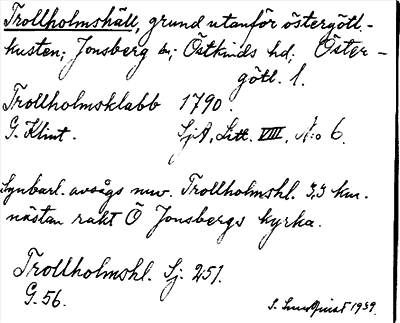 Trollholmshäll, grund utanför östergötl.-
kusten; Jonsberg sn; Östkinds hd; Öster-
götl. l.
Trollholmsklabb 1790.
G. Klint. SjA, Litt. VIII, No 6.
Synbarl. avsågs nuv. Trollholmshl. 3,3 km.
nästan rakt Ö Jonsbergs kyrka.
Trollholmshl. Sj. 251.
G. 56.
S. Lundqvist 1939.